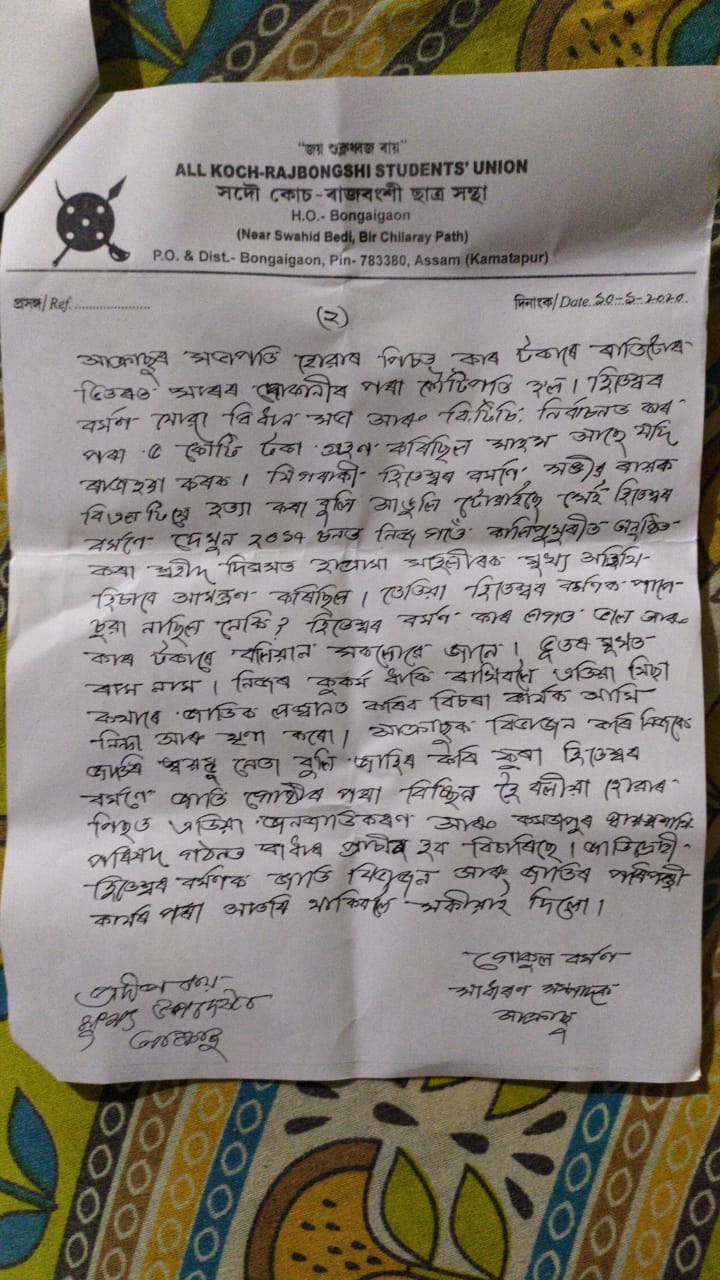 "জয় শুক্লধ্বজ ৰায়"
ALL KOCH-RAJBONGSHI STUDENTS' UNION
সদৌ কোচ-ৰাজবংশী ছাত্ৰ সন্থা
H.O.- Bongaigaon
(Near Swahid Bedi, Bir Chilaray Path)
P.O. & Dist.- Bongaigaon, Pin- 783380, Assam (Kamatapur)
প্ৰসঙ্গ/ Ref. .....................
দিনাংক/ Date. ১০-১-২০২০
(২)
আক্ৰাছুৰ সভাপতি হোৱাৰ পিচত কাৰ টকাৰে ৰাতিটোৰ
ভিতৰত দোকানীৰ পৰা কৌটিপতি হল। হিতেশ্বৰ
বৰ্মণ যোৱা বিধান সভা আৰু বি.টি.চি. নিৰ্বাচনত কাৰ
পৰা ৫ কৌটি টকা গ্ৰহণ কৰিছিল সাহস আছে যদি
কৰক। হিতেশ্বৰ বৰ্মণে সঞ্জীৱ ৰায়ক
হত্যা কৰা বুলি আঙুলি টোৱাইছে সেই হিতেশ্বৰ
বৰ্মণে দেখুন ২০১৭ চনত নিজ গাওঁ কালিপুখুৰীত অনুষ্ঠিত
কৰা শ্বহীদ দিৱসত হাগ্ৰামা মহিলীৰক মুখ্য অতিথি
হিচাবে আমন্ত্ৰণ কৰিছিল। তেতিয়া হিতেশ্বৰ বৰ্মণক
নাছিল নেকি? হিতেশ্বৰ বৰ্মণ কাৰ লগত চলে আৰু
কাৰ টকাৰে বলিয়ান সকলোৱে জানে। ভূতৰ মুখত
ৰাম নাম। নিজৰ কুকৰ্ম ঢাকি ৰাখিবলৈ এতিয়া মিছা
কথাৰে জাতিক কৰিব বিচৰা কাৰ্যক আমি
নিন্দা আৰু ঘৃণা কৰো। আক্ৰাছুক বিভাজন কৰি নিজকে
জাতিৰ স্বয়ম্ভু নেতা বুলি জাহিৰ কৰি ফুৰা হিতেশ্বৰ
বৰ্মণে জাতি গোষ্ঠীৰ পৰা বিচ্ছিন্ন হৈ বলীয়া হোৱাৰ
পিছত এতিয়া জনজাতিকৰণ আৰু কমতাপুৰ স্বায়ত্বশাসিত
পৰিষদ গঠনত বাধাৰ প্ৰাচীৰ হব বিচাৰিছে। জাতিদ্ৰোহী
হিতেশ্বৰ বৰ্মণক জাতি বিভাজন আৰু জাতিৰ পৰিপন্থী
কাৰ্যৰ পৰা আতৰি থাকিবলৈ সকীয়াই দিলো।
গোকুল বৰ্মণ
সাধাৰণ সম্পাদক
আক্ৰাছু
প্ৰদীপ ৰায়
মুখ্য উপদেষ্টা
আক্ৰাছু